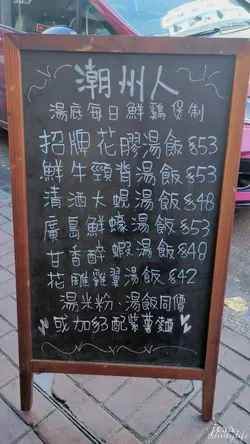 潮州人
湯底每日鮮鷄煲制
招牌花膠湯飯$53
鮮牛頸脊湯飯$53
清酒大蜆湯飯$48
廣島鮮蠔湯飯$53
甘香醉蝦湯飯$48
花雕雞翼湯飯$42
湯米粉、湯飯同價
或加$3配紫薯麵